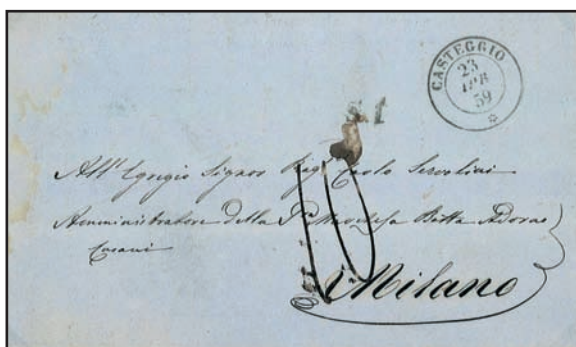 CASTEGGIO
23
APR
59
All' Egregio Signor Rag. Carlo Servolini
Amministratore della Sra Marchesa Botta Adorno
Cusani
10
Milano